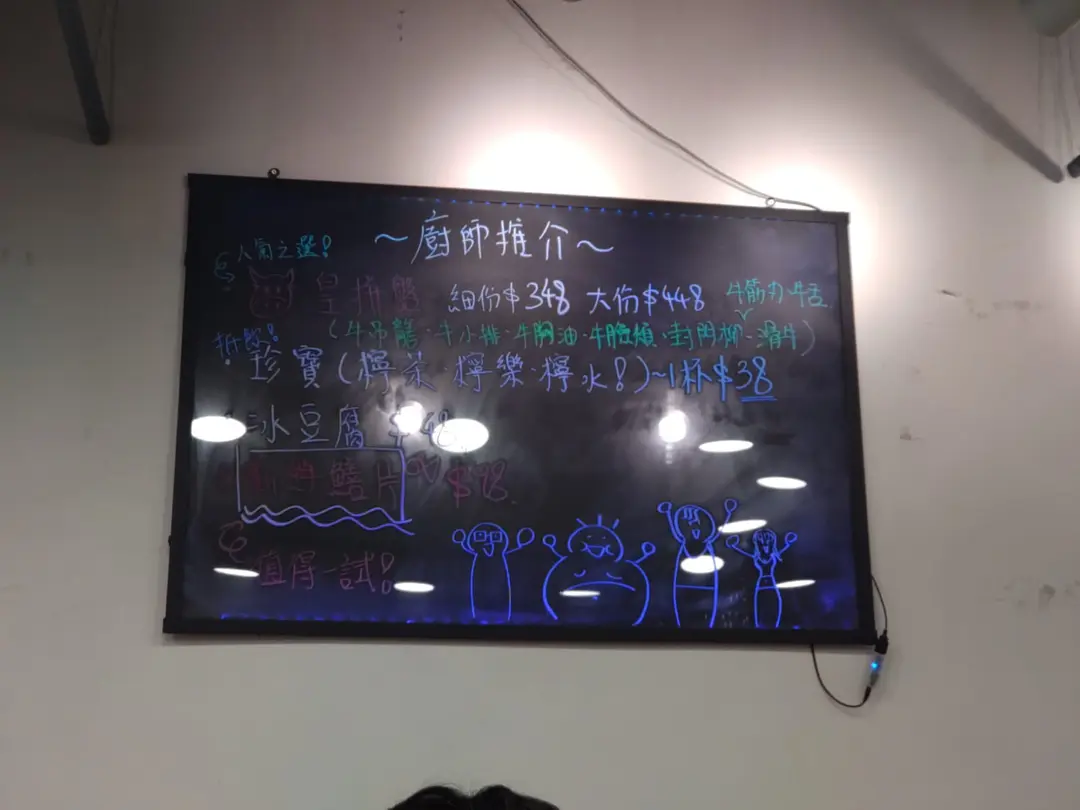 ~廚師推介~
人氣之選!
皇拼盤 細份$348 大份$448 牛筋 牛舌
(牛吊龍·牛小排·牛胸油·牛臉頰·封門柳·滑牛)
珍寶(檸茶·檸樂·檸水!)~1杯$38
冰豆腐 $48
鱔片 $98
值得一試!